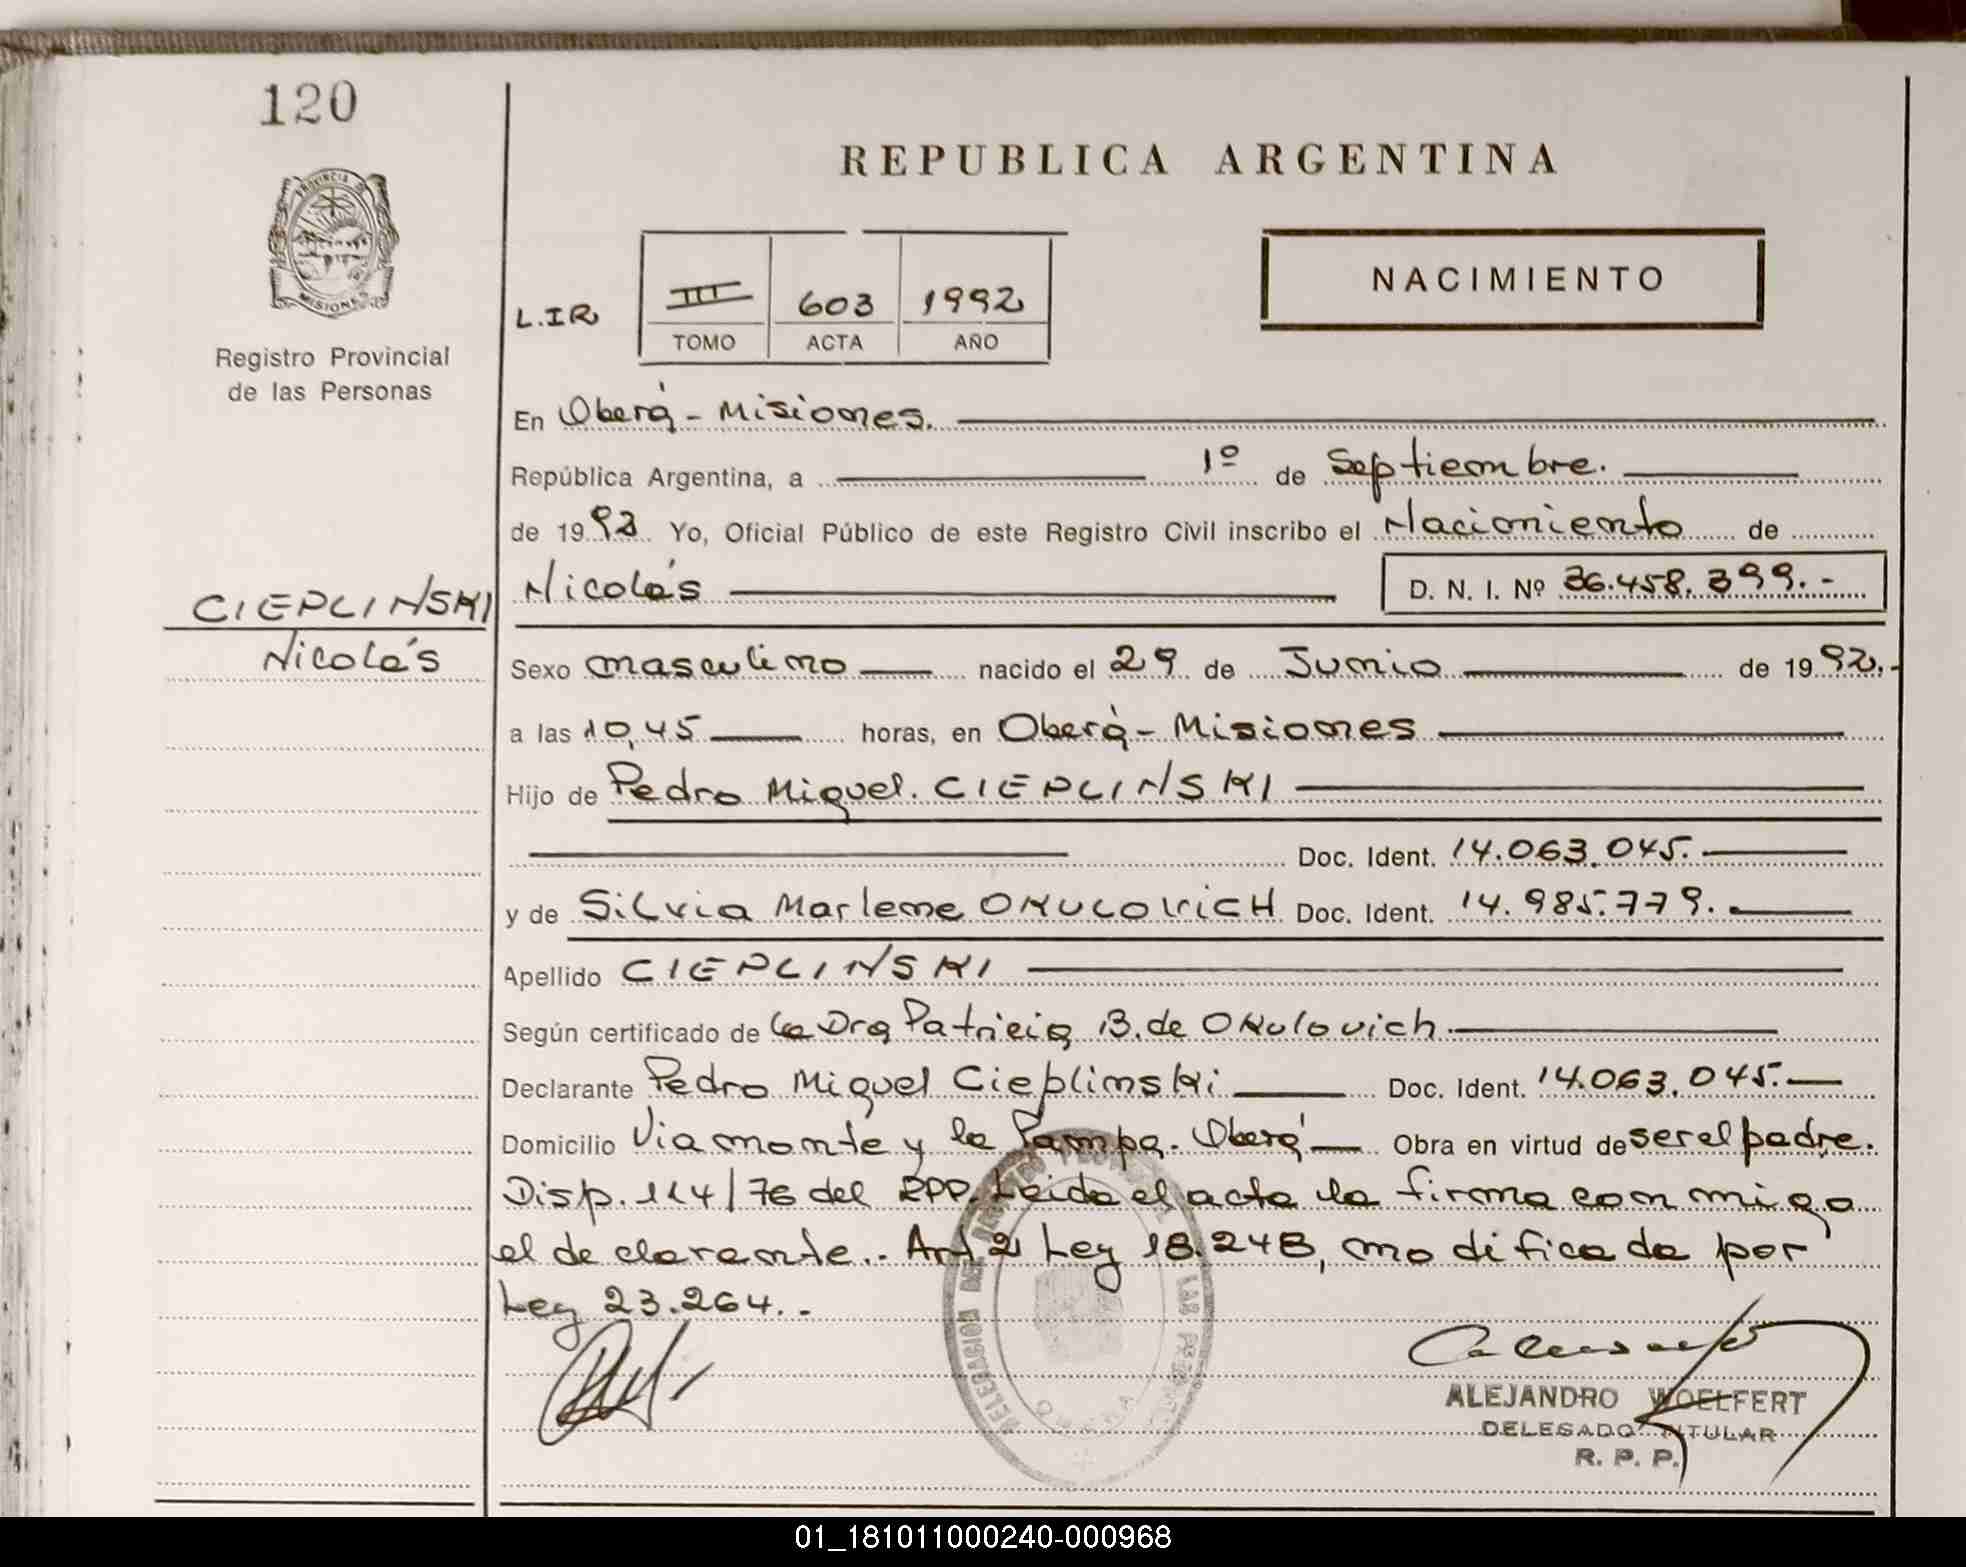 120
REPUBLICA ARGENTINA
PROVINCIA DE
MISIONES
Registro Provincial
de las Personas
L.I.R
III 603 1992
TOMO ACTA AÑO
NACIMIENTO
En Oberá - Misiones.
República Argentina, a 1º de Septiembre.
de 1992 Yo, Oficial Público de este Registro Civil inscribo el Nacimiento de
Nicolás D. N. I. Nº 36.458.399.-
CIEPLINSKI
Nicolás
Sexo masculino nacido el 29 de Junio de 1992.-
a las 10,45 horas, en Oberá - Misiones
Hijo de Pedro Miguel. CIEPLINSKI
Doc. Ident. 14.063.045.
y de Silvia Marlene OKULOVICH Doc. Ident. 14.985.779.
Apellido CIEPLINSKI
Según certificado de la Dra Patricia B. de Okulovich
Declarante Pedro Miguel Cieplinski Doc. Ident. 14.063.045.
Domicilio Viamonte y la Pampa. Oberá Obra en virtud de ser el padre.
Disp. 114/76 del RPP. Leida el acta la firma conmigo
el declarante.. Art 2 Ley 18.248, modificada por
Ley 23.264..
DELEGACION DEL REGISTRO PROVINCIAL DE LAS PERSONAS
OBERA
ALEJANDRO WOELFERT
DELEGADO TITULAR
R. P. P.
01_181011000240-000968